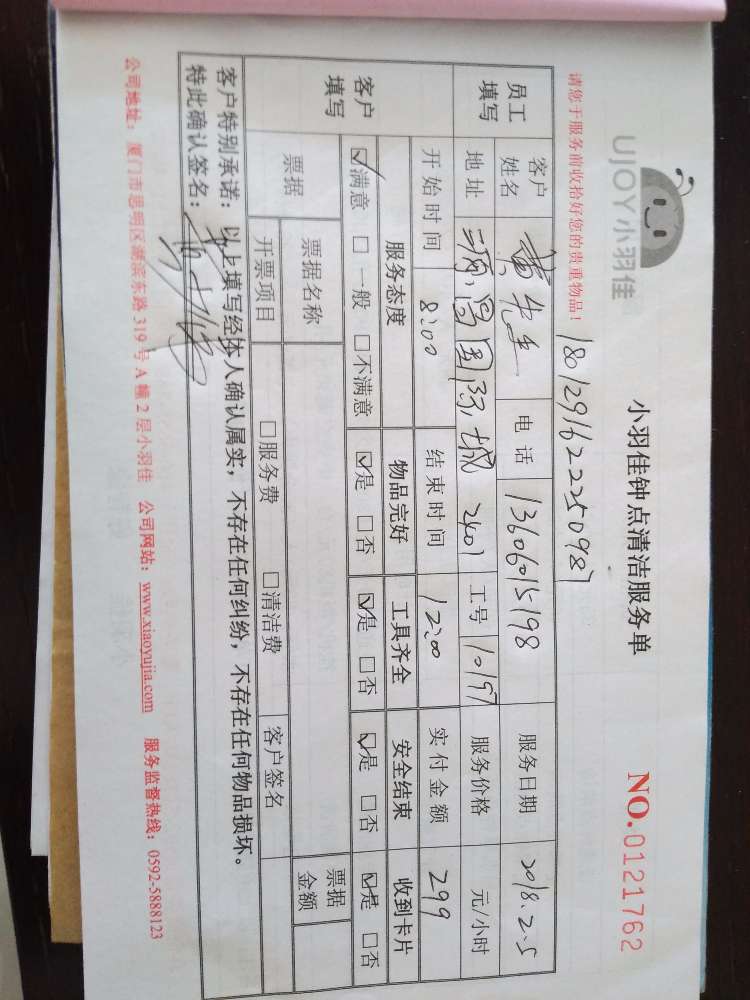 UJOY小羽佳
小羽佳钟点清洁服务单
NO.0121762
请您于服务前收拾好您的贵重物品！
180129162225098
员工填写
客户姓名 黄先生 电话 13606015198 服务日期 2018.2.5
地址 国际城 2401 工号 10197 服务价格 元/小时
开始时间 8:00 结束时间 12:00 实付金额 299
客户填写
服务态度 物品完好 工具齐全 安全结束 收到卡片
☑满意 □一般 □不满意 ☑是 □否 ☑是 □否 ☑是 □否 ☑是 □否
票据 票据名称 票据金额
开票项目 □服务费 □清洁费 客户签名
客户特别承诺：以上填写经本人确认属实，不存在任何纠纷，不存在任何物品损坏。
特此确认签名：
公司地址：厦门市思明区湖滨东路 319 号 A 幢 2 层小羽佳 公司网站：www.xiaoyujia.com 服务监督热线：0592-5888123